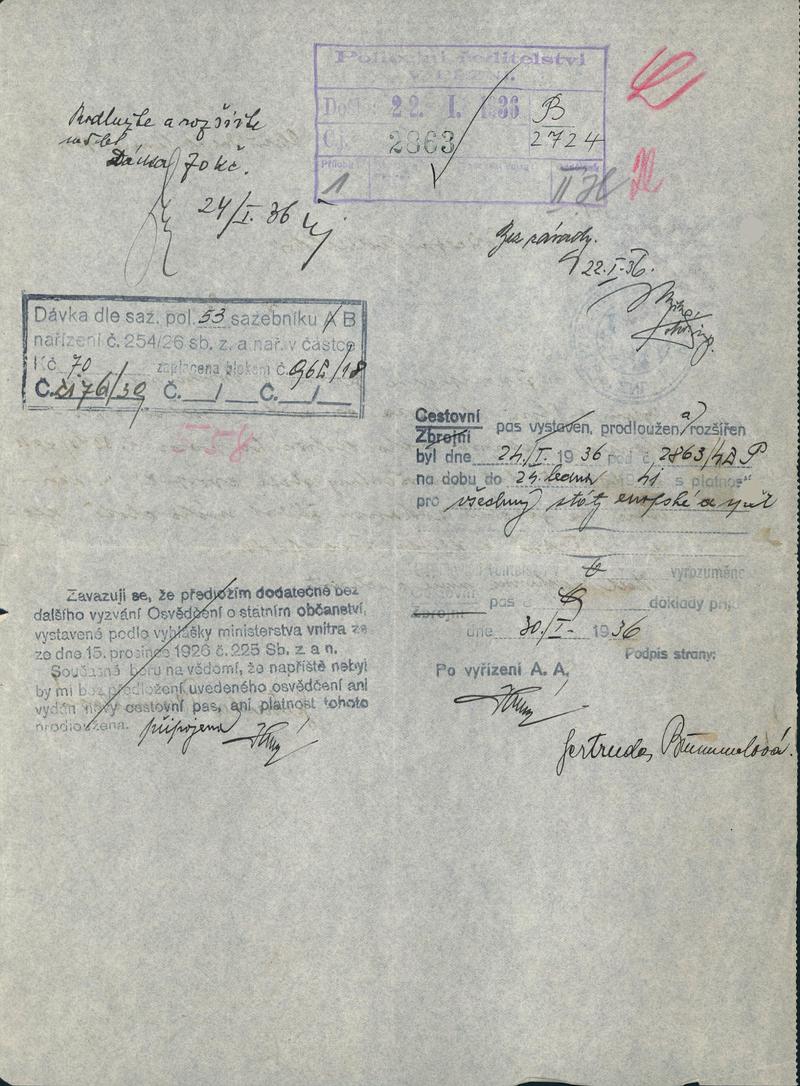 Policejní ředitelství
Došlo: 22. I. 1936
B
Čj. 2863
2724
Přílohy
1
II
Prodlužte a rozšiřte
Dávka 70 Kč.
24/I. 36
Bez závady.
22.I.36.
Dávka dle saz. pol. 53 sazebníku A B
nařízení č. 254/26 sb. z. a nař. v částce
Kč 70 zaplacena blokem č.
Č. Č. / Č. /
Cestovní
Zbrojní pas vystaven, prodloužen a) rozšířen
byl dne 24./I. 1936 pod č. 2863
na dobu do 24. ledna 41 s platností
pro všechny státy evropské a zpět
vyrozuměno
Zbrojní pas a doklady
dne 30./I. 1936
Podpis strany:
Po vyřízení A. A.
Gertruda
Zavazuji se, že předložím dodatečně bez
dalšího vyzvání Osvědčení o statním občanství,
vystavené podle vyhlášky ministerstva vnitra ze
ze dne 15. prosince 1926 č. 225 Sb. z. a n.
Současně beru na vědomí, že napříště nebyl
by mi bez předložení uvedeného osvědčení ani
vydán nový cestovní pas, ani platnost tohoto
prodloužena.
připojeno